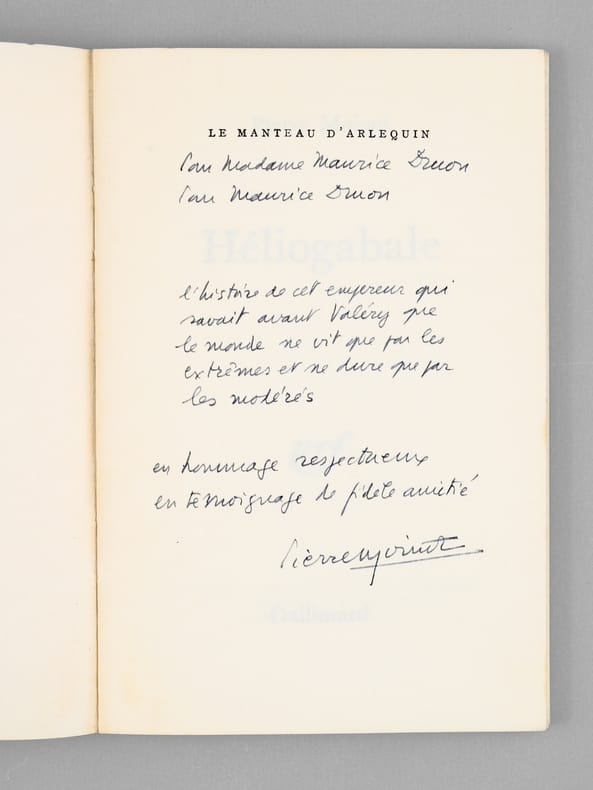 LE MANTEAU D'ARLEQUIN
Pour Madame Maurice Druon
Pour Maurice Druon
Héliogabale
l'histoire de cet empereur qui
savait avant Valéry que
le monde ne vit que par les
extrêmes et ne dure que par
les modérés
nrf
en hommage respectueux
en témoignage de fidèle amitié
Pierre Moinot
Gallimard